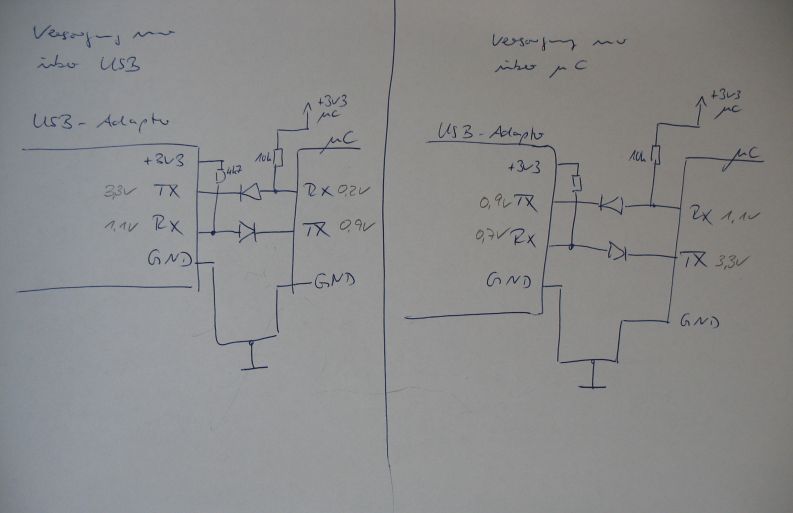 Versorgung nur
über USB
USB-Adapter
+3V3
4k7
10k
+3V3
µC
µC
3,3V TX
RX 0,2V
1,1V RX
TX 0,9V
GND
GND
Versorgung nur
über µC
USB-Adapter
+3V3
10k
+3V3
µC
µC
0,9V TX
RX 1,1V
0,7V RX
TX 3,3V
GND
GND